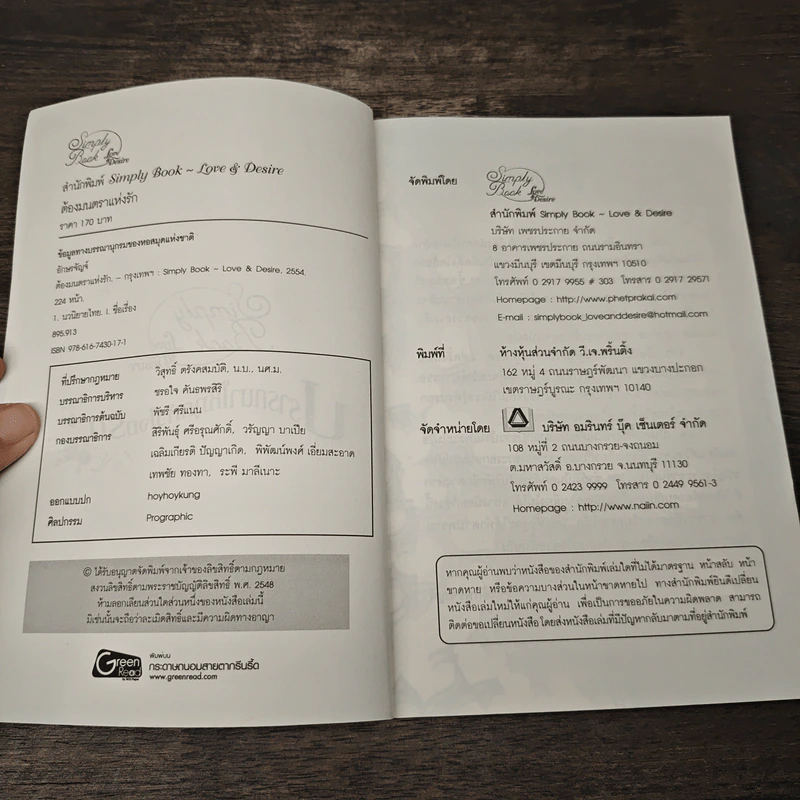 Simply
Book
Love
& Desire
สำนักพิมพ์ Simply Book ~ Love & Desire
ต้องมนตราแห่งรัก
ราคา 170 บาท
ข้อมูลทางบรรณานุกรมของหอสมุดแห่งชาติ
อักษรจัญจ์
ต้องมนตราแห่งรัก. – กรุงเทพฯ : Simply Book ~ Love & Desire, 2554.
224 หน้า.
1. นวนิยายไทย. I. ชื่อเรื่อง
895.913
ISBN 978-616-7430-17-1
ที่ปรึกษากฎหมาย วิสุทธิ์ ตรังคสมบัติ, น.บ., นศ.ม.
บรรณาธิการบริหาร ชรอใจ คันธพรสิริ
บรรณาธิการต้นฉบับ พัชรี ศรีแนน
กองบรรณาธิการ สิริพันธุ์ ศรีอรุณศักดิ์, วรัญญา บาเปีย
เฉลิมเกียรติ ปัญญาเกิด, พิพัฒน์พงศ์ เอี่ยมสะอาด
เทพชัย ทองทา, ระพี มาลีเนาะ
ออกแบบปก hoyhoykung
ศิลปกรรม Prographic
© ได้รับอนุญาตจัดพิมพ์จากเจ้าของลิขสิทธิ์ตามกฎหมาย
สงวนลิขสิทธิ์ตามพระราชบัญญัติลิขสิทธิ์ พ.ศ. 2548
ห้ามลอกเลียนส่วนใดส่วนหนึ่งของหนังสือเล่มนี้
มิเช่นนั้นจะถือว่าละเมิดสิทธิ์และมีความผิดทางอาญา
Green
Read
พิมพ์บน
กระดาษถนอมสายตากรีนรี้ด
www.greenread.com
จัดพิมพ์โดย
Simply
Book
Love
& Desire
สำนักพิมพ์ Simply Book ~ Love & Desire
บริษัท เพชรประกาย จำกัด
8 อาคารเพชรประกาย ถนนรามอินทรา
แขวงมีนบุรี เขตมีนบุรี กรุงเทพฯ 10510
โทรศัพท์ 0 2917 9955 # 303 โทรสาร 0 2917 29571
Homepage : http://www.phetprakai.com
E-mail : simplybook_loveanddesire@hotmail.com
พิมพ์ที่ ห้างหุ้นส่วนจำกัด วี.เจ.พริ้นติ้ง
162 หมู่ 4 ถนนราษฎร์พัฒนา แขวงบางปะกอก
เขตราษฎร์บูรณะ กรุงเทพฯ 10140
จัดจำหน่ายโดย บริษัท อมรินทร์ บุ๊ค เซ็นเตอร์ จำกัด
108 หมู่ที่ 2 ถนนบางกรวย-จงถนอม
ต.มหาสวัสดิ์ อ.บางกรวย จ.นนทบุรี 11130
โทรศัพท์ 0 2423 9999 โทรสาร 0 2449 9561-3
Homepage : http://www.naiin.com
หากคุณผู้อ่านพบว่าหนังสือของสำนักพิมพ์เล่มใดที่ไม่ได้มาตรฐาน หน้าสลับ หน้า
ขาดหาย หรือข้อความบางส่วนในหน้าขาดหายไป ทางสำนักพิมพ์ยินดีเปลี่ยน
หนังสือเล่มใหม่ให้แก่คุณผู้อ่าน เพื่อเป็นการขออภัยในความผิดพลาด สามารถ
ติดต่อขอเปลี่ยนหนังสือ โดยส่งหนังสือเล่มที่มีปัญหากลับมาตามที่อยู่สำนักพิมพ์